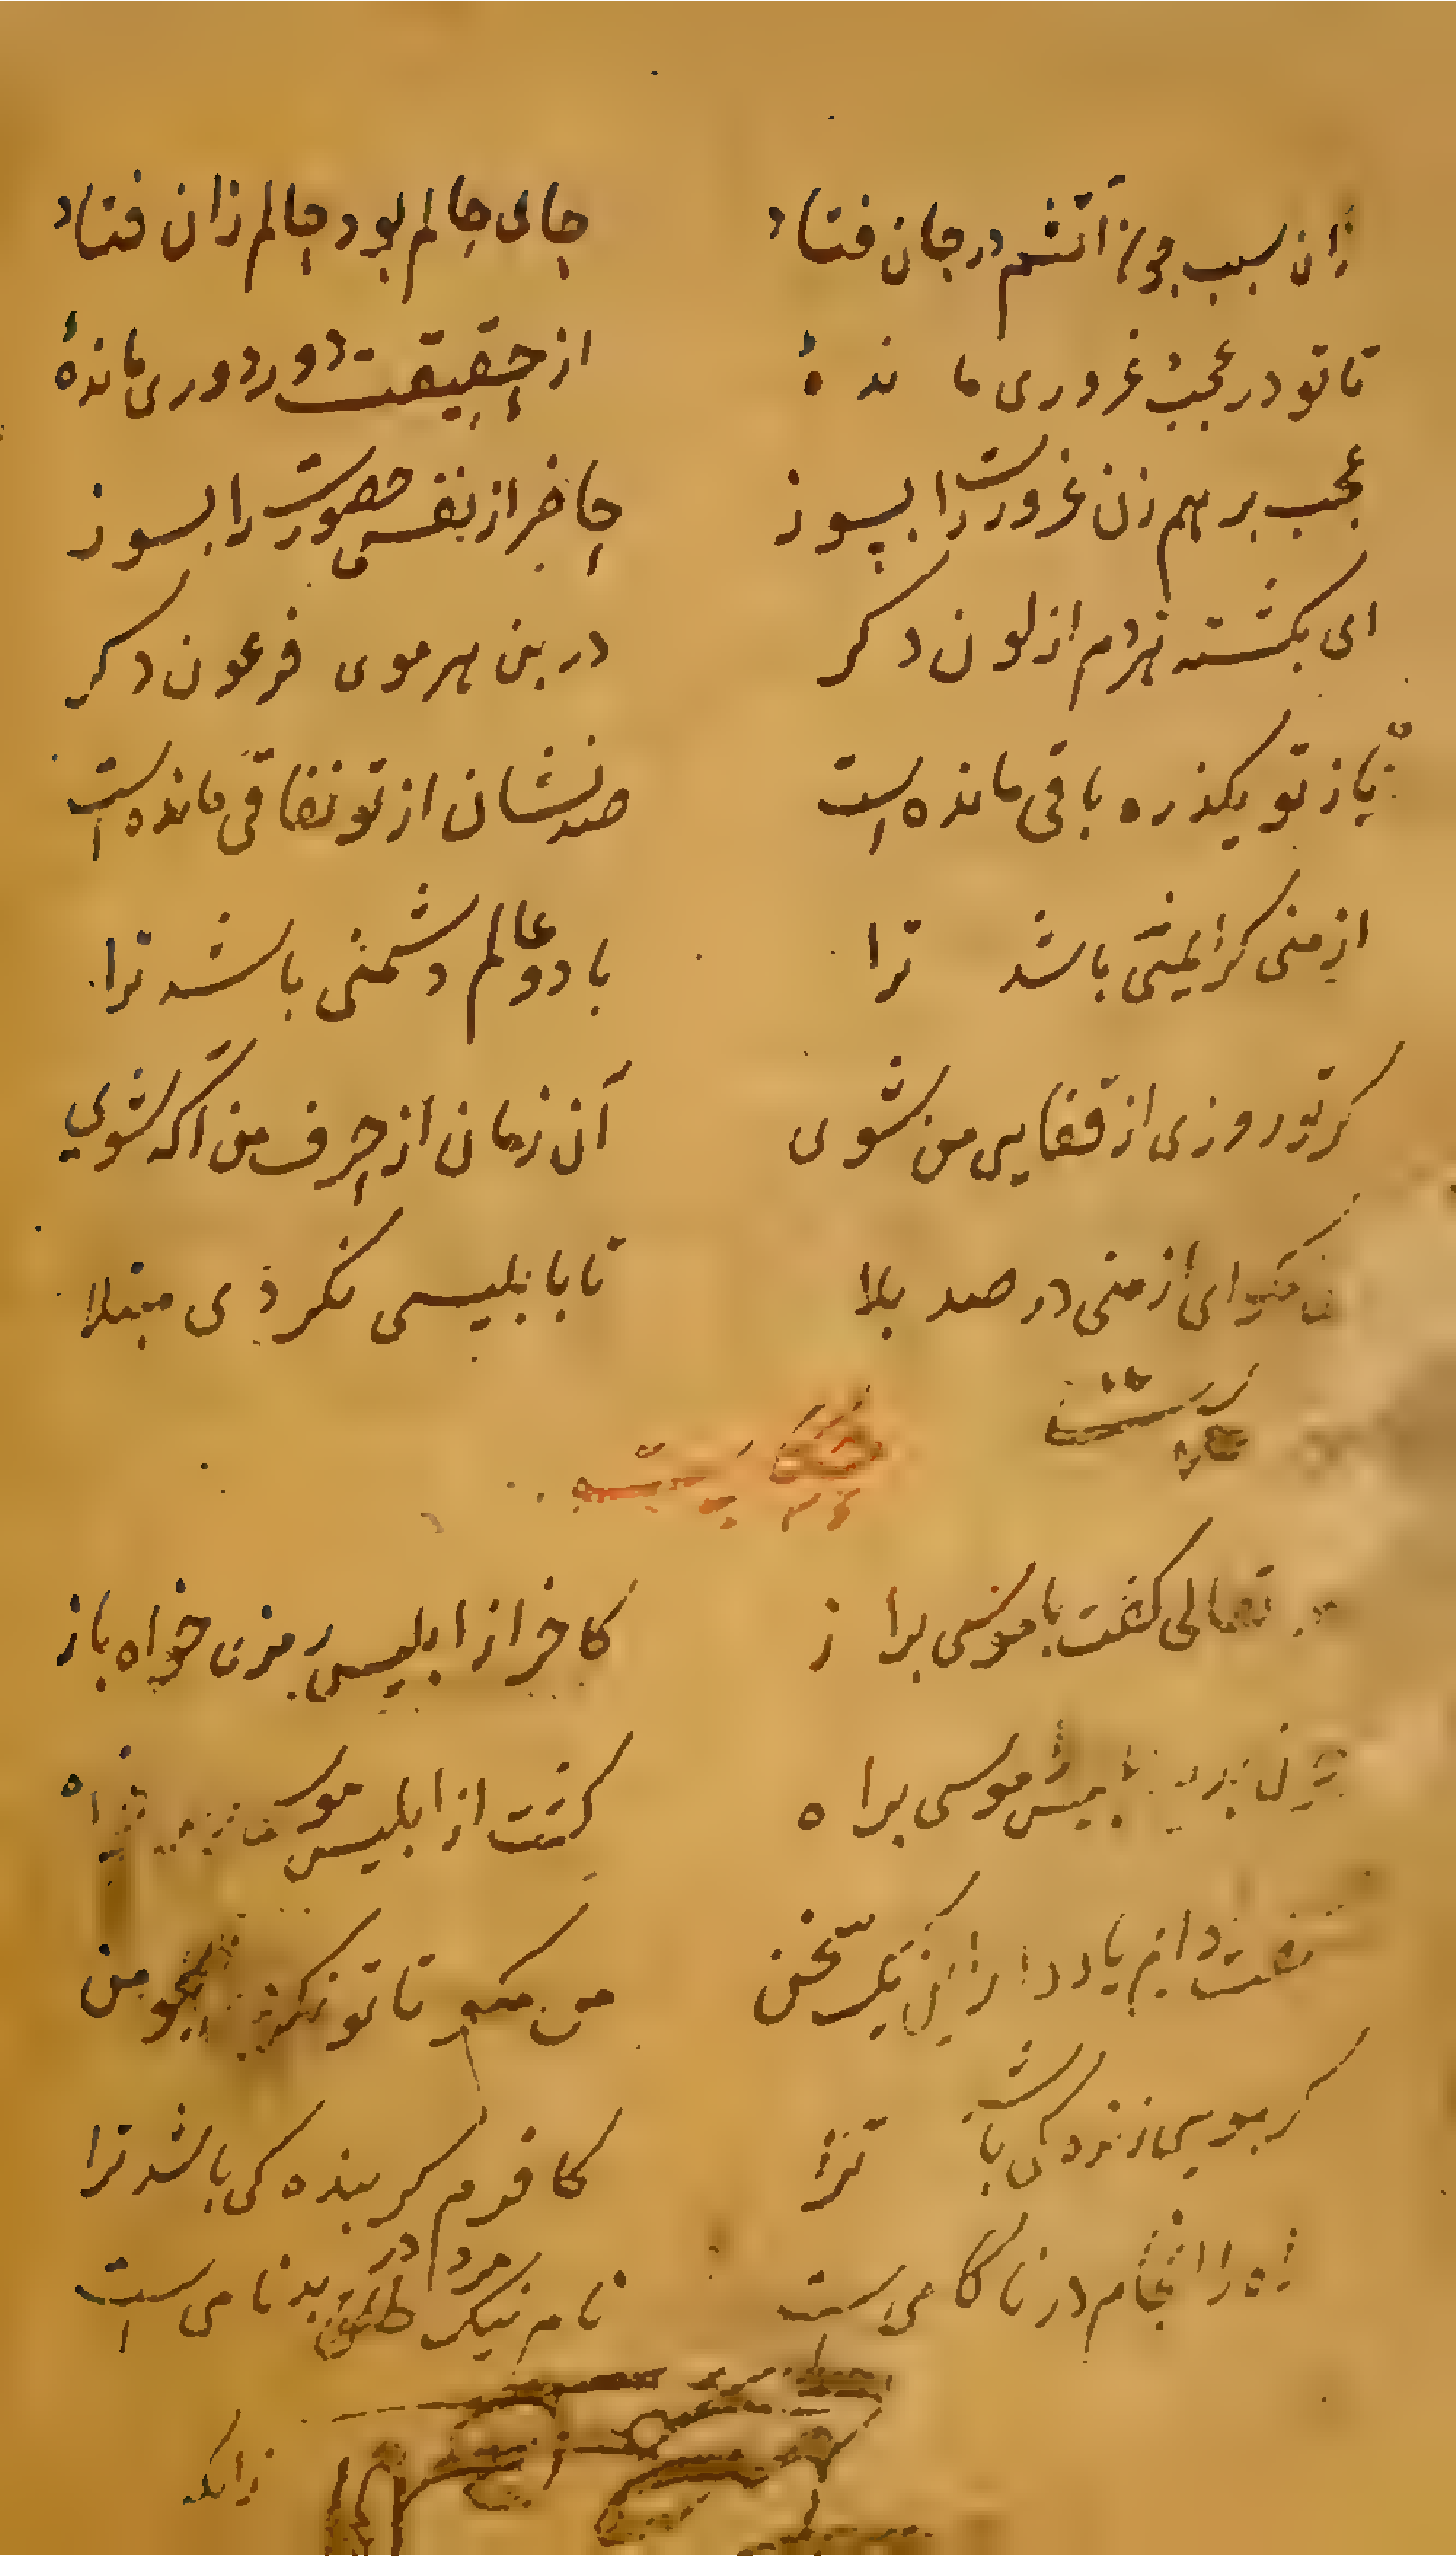 زان سبب چون آتشم در جان فتاد حالی حالم بود حالم زان فتاد
تا تو در عجب غروری مانده‌ٔ از حقیقت دور دوری مانده‌ٔ
عجب بر هم زن غرورت را بسوز حاضر از نفسی حضورت را بسوز
ای بکشته هردم از لون دکر در بن هر موی فرعون دکر
تا ز تو یکذره باقی مانده است صد نشان از تو نفاقی مانده است
از منی کر ایمنی باشد ترا با دو عالم دشمنی باشد ترا
کر تو روزی از فقایی من شوی آن زمان از حرف من اکه شوی
من مکو ای از منی در صد بلا تا بابلیسی نکردی مبتلا
حکایت
تعالی کفت با موسی براز کاخر از ابلیس رمزی خواه باز
موسی براه کشت از ابلیس
دایم یاد دار این یک سخن من مکو تا تو نکردی همچو من
کر بمویی زندکی باشد ترا کافری کر بنده کی باشد ترا
راه را انجام در ناکامی است نام نیک مرد در بدنامی است
زانکه